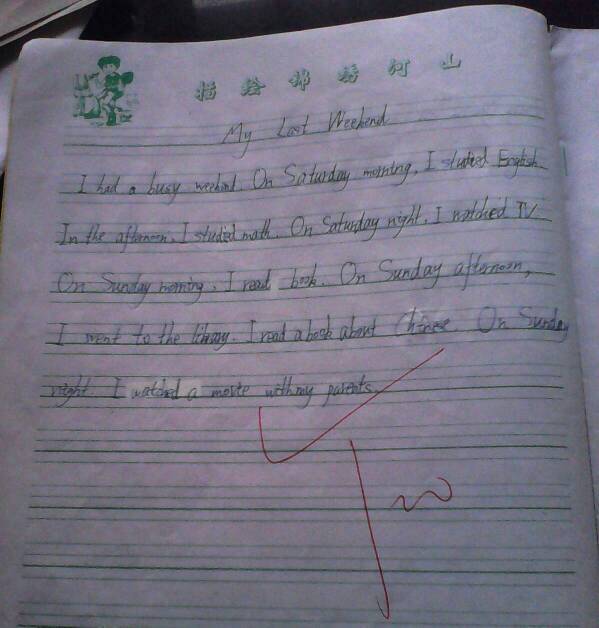 描绘锦绣河山
My Last Weekend
I had a busy weekend. On Saturday morning, I studied English.
In the afternoon, I studied math. On Saturday night, I watched TV.
On Sunday morning, I read book. On Sunday afternoon,
I went to the library. I read a book about Chinese On Sunday
night. I watched a movie with my parents.
100